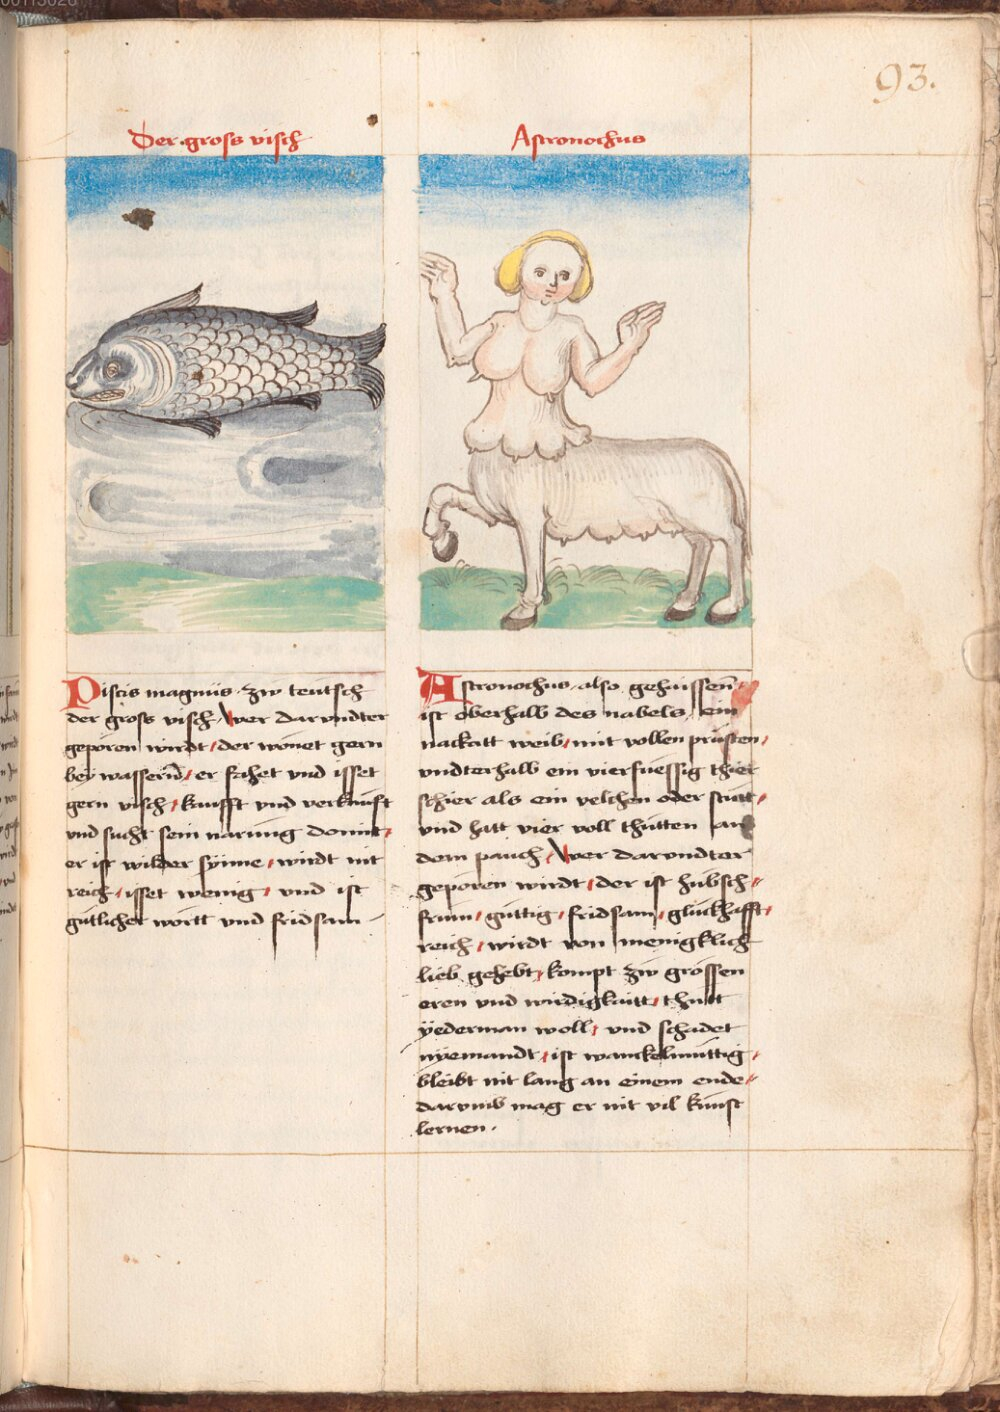 93.
Der gross visch
Piscis magnus zw teutsch
der gross visch Wer darundter
geporen wirdt der wonet gern
bey wassern er fahet vnd isset
gern visch kaufft vnd verkauft
vnd sucht sein narung domit
er ist wilder synne wirdt nit
reich isset wenig vnd ist
gütlicher wortt vnd fridsam
Astronochus
Astronochus also gehaissen
ist oberhalb des nabels ein
nackatt weib mit vollen prüsten
vndterhalb ein vierfuessig thier
schier als ein velchen oder stutt
vnd hatt vier voll thutten an
dem pauch Wer darvndter
geporen wirdt der ist hübsch
frum güttig fridsam glückhafft
reich wirdt von menigklich
lieb gehebt kompt zw grossen
eren vnd wirdigkaitt thutt
yederman woll vnd schadet
nyemandt ist wanckelmüttig
bleibt nit lang an einem ende
darvmb mag er nit vil kunst
lernen.